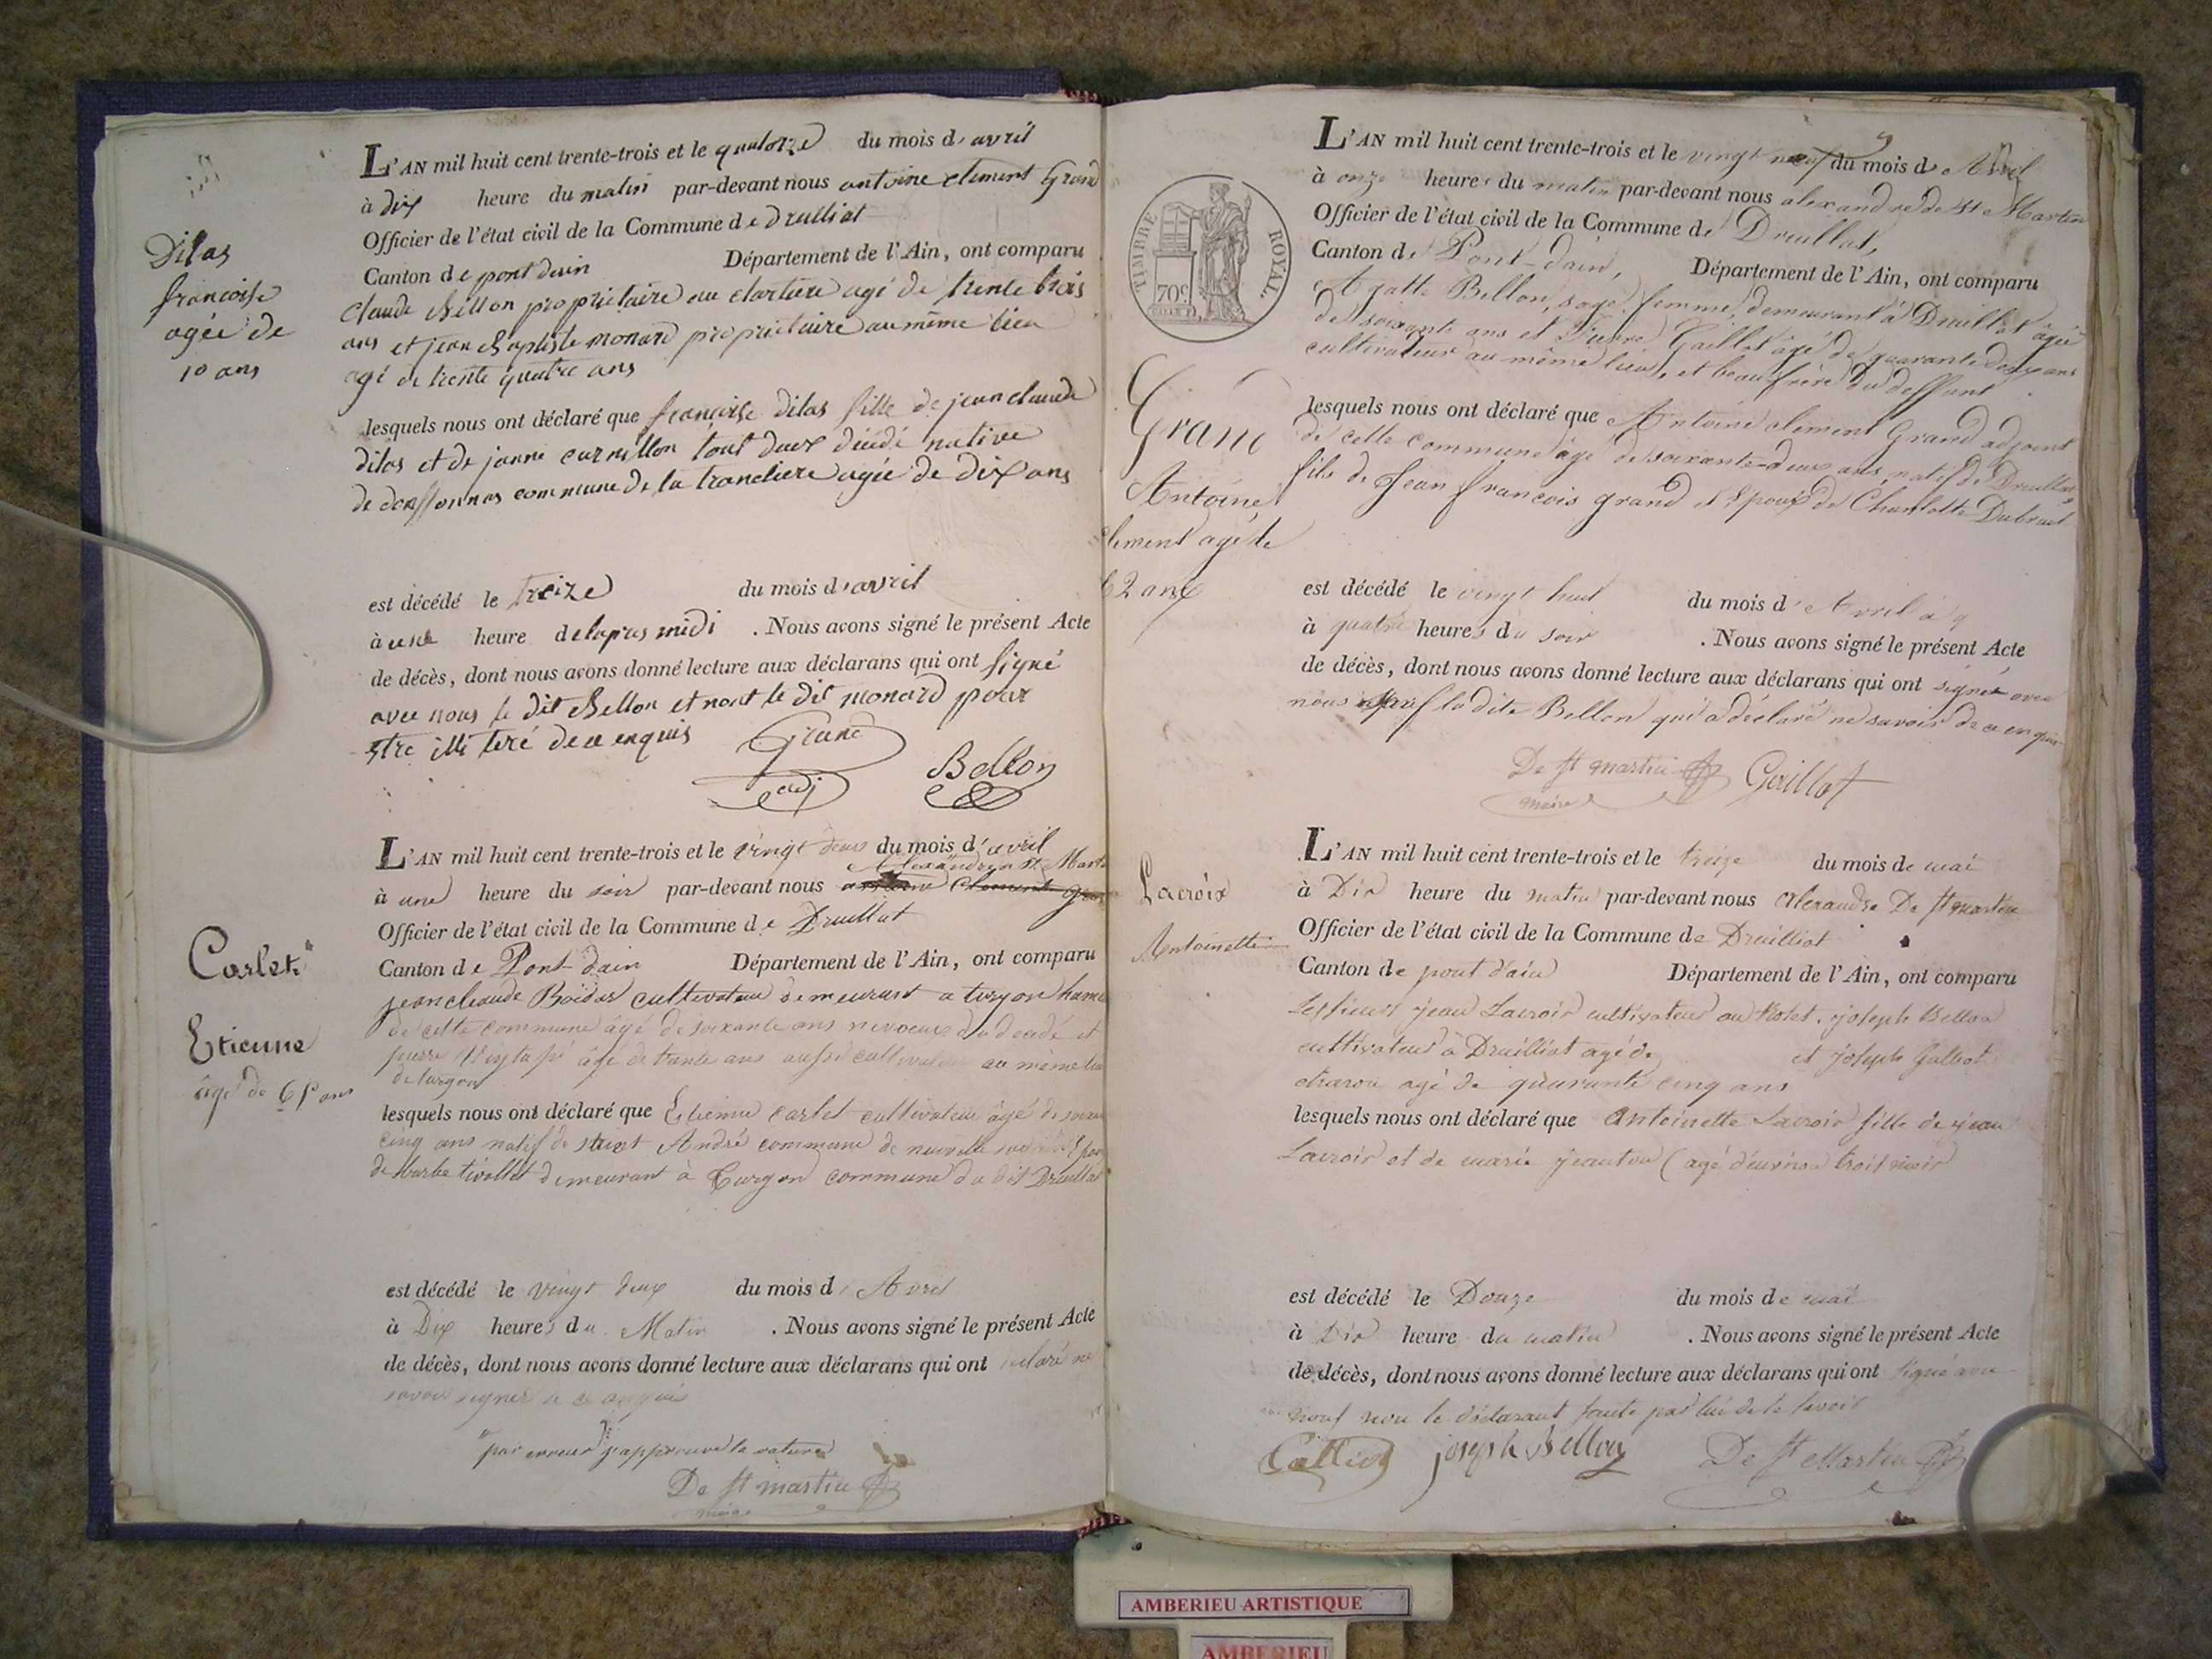 Dilas
françoise
agée de
10 ans
L'AN mil huit cent trente-trois et le quatorze du mois d'avril
à dix heure du matin par-devant nous antoine clement Grand
Officier de l'état civil de la Commune de druillat
Canton de pont dain Département de l'Ain, ont comparu
Claude Bellon propriétaire au agé de trente trois
ans et jean Baptiste monard propriétaire au même lieu
agé de trente quatre ans
lesquels nous ont déclaré que françoise dilas fille de jean claude
dilas et de janne tout deux native
de commune de la trancliere agée de dix ans
est décédé le treize du mois d'avril
à une heure delapres midi . Nous avons signé le présent Acte
de décès, dont nous avons donné lecture aux déclarans qui ont signé
avec nous le dit Bellon et nont le dit monard pour
estre illiteré de ce enquis
Grand
adj
Bellon
Carlet
Etienne
âgé de 65 ans
L'AN mil huit cent trente-trois et le vingt deux du mois d'avril
Alexandre de St Martin
à une heure du soir par-devant nous antoine Clement Grand
Officier de l'état civil de la Commune de Druillat
Canton de Pont dain Département de l'Ain, ont comparu
jean claude cultivateur demeurant a turgon hameau
de cette commune âgé de soixante ans du décédé et
pierre âgé de trente ans aussi cultivateur au même lieu
de turgon
lesquels nous ont déclaré que Etienne Carlet cultivateur âgé de soixante
cinq ans natif de saint André commune de neuville
de demeurant à Turgon commune du dit Druillat
est décédé le vingt deux du mois d'Avril
à Dix heures du Matin . Nous avons signé le présent Acte
de décès, dont nous avons donné lecture aux déclarans qui ont déclaré ne
savoir signer de ce enquis
par erreur j'approuve la rature
De St martin
maire
TIMBRE ROYAL.
70c
Grand
Antoine
Clement agé de
62 ans
L'AN mil huit cent trente-trois et le vingt neuf du mois d'Avril
à onze heures du matin par-devant nous alexandre de St Martin
Officier de l'état civil de la Commune de Druillat,
Canton de Pont-dain, Département de l'Ain, ont comparu
Agatte Bellon, sage femme, demeurant à Druillat âgée
de soixante ans et Pierre Gaillot âgé de quarante deux ans
cultivateur au même lieu, et beau frère du deffunt
lesquels nous ont déclaré que Antoine clément Grand adjoint
de cette commune âgé de soixante-deux ans, natif de Druillat,
fils de Jean François grand et Epoux de Charlotte Dubreul
est décédé le vingt huit du mois d'Avril
à quatre heures du soir . Nous avons signé le présent Acte
de décès, dont nous avons donné lecture aux déclarans qui ont signé avec
nous sauf la dite Bellon qui a déclaré ne savoir de ce enquis
De St martin
maire
Gaillot
Lacroix
Antoinette
L'AN mil huit cent trente-trois et le treize du mois de mai
à Dix heure du matin par-devant nous Alexandre De St martin
Officier de l'état civil de la Commune de Druilliat
Canton de pont d'ain Département de l'Ain, ont comparu
Les sieurs jean Lacroix cultivateur au joseph Bellon
cultivateur à Druilliat agé de et joseph
charon agé de quarante cinq ans
lesquels nous ont déclaré que Antoinette Lacroix fille de jean
Lacroix et de marie (agé d'environ trois mois)
est décédé le Douze du mois de mai
à Dix heure du matin . Nous avons signé le présent Acte
de décès, dont nous avons donné lecture aux déclarans qui ont signé avec
nous non le déclarant faute par lui de le savoir
joseph Bellon
De St Martin
AMBERIEU ARTISTIQUE
AMBERIEU